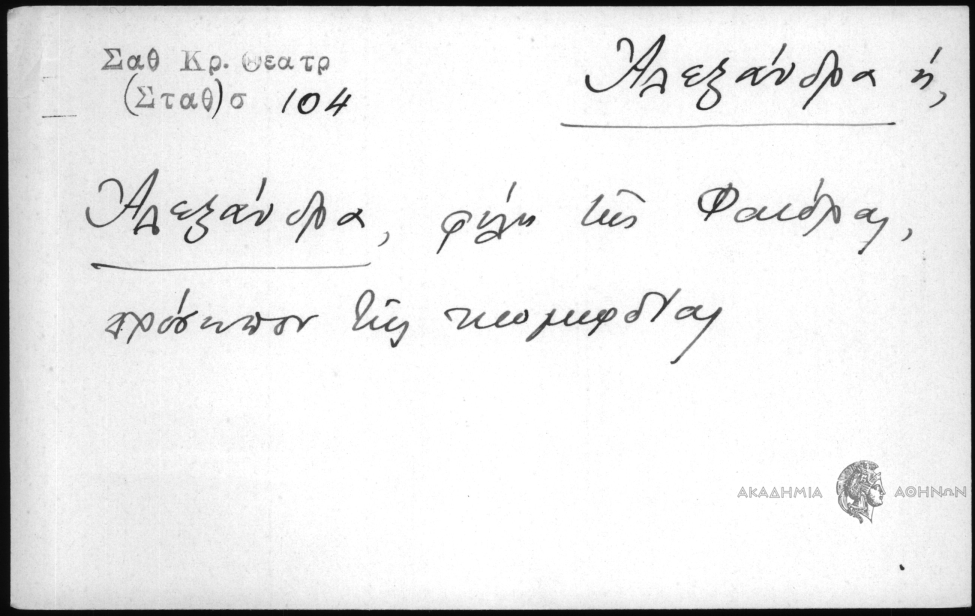 Σαθ Κρ. Θεατρ
(Σταθ)σ 104
Ἀλεξάνδρα ἡ,
Ἀλεξάνδρα, φίλη τῆς Φαίδρας,
πρόσωπον τῆς κωμῳδίας
ΑΚΑΔΗΜΙΑ ΑΘΗΝΩΝ